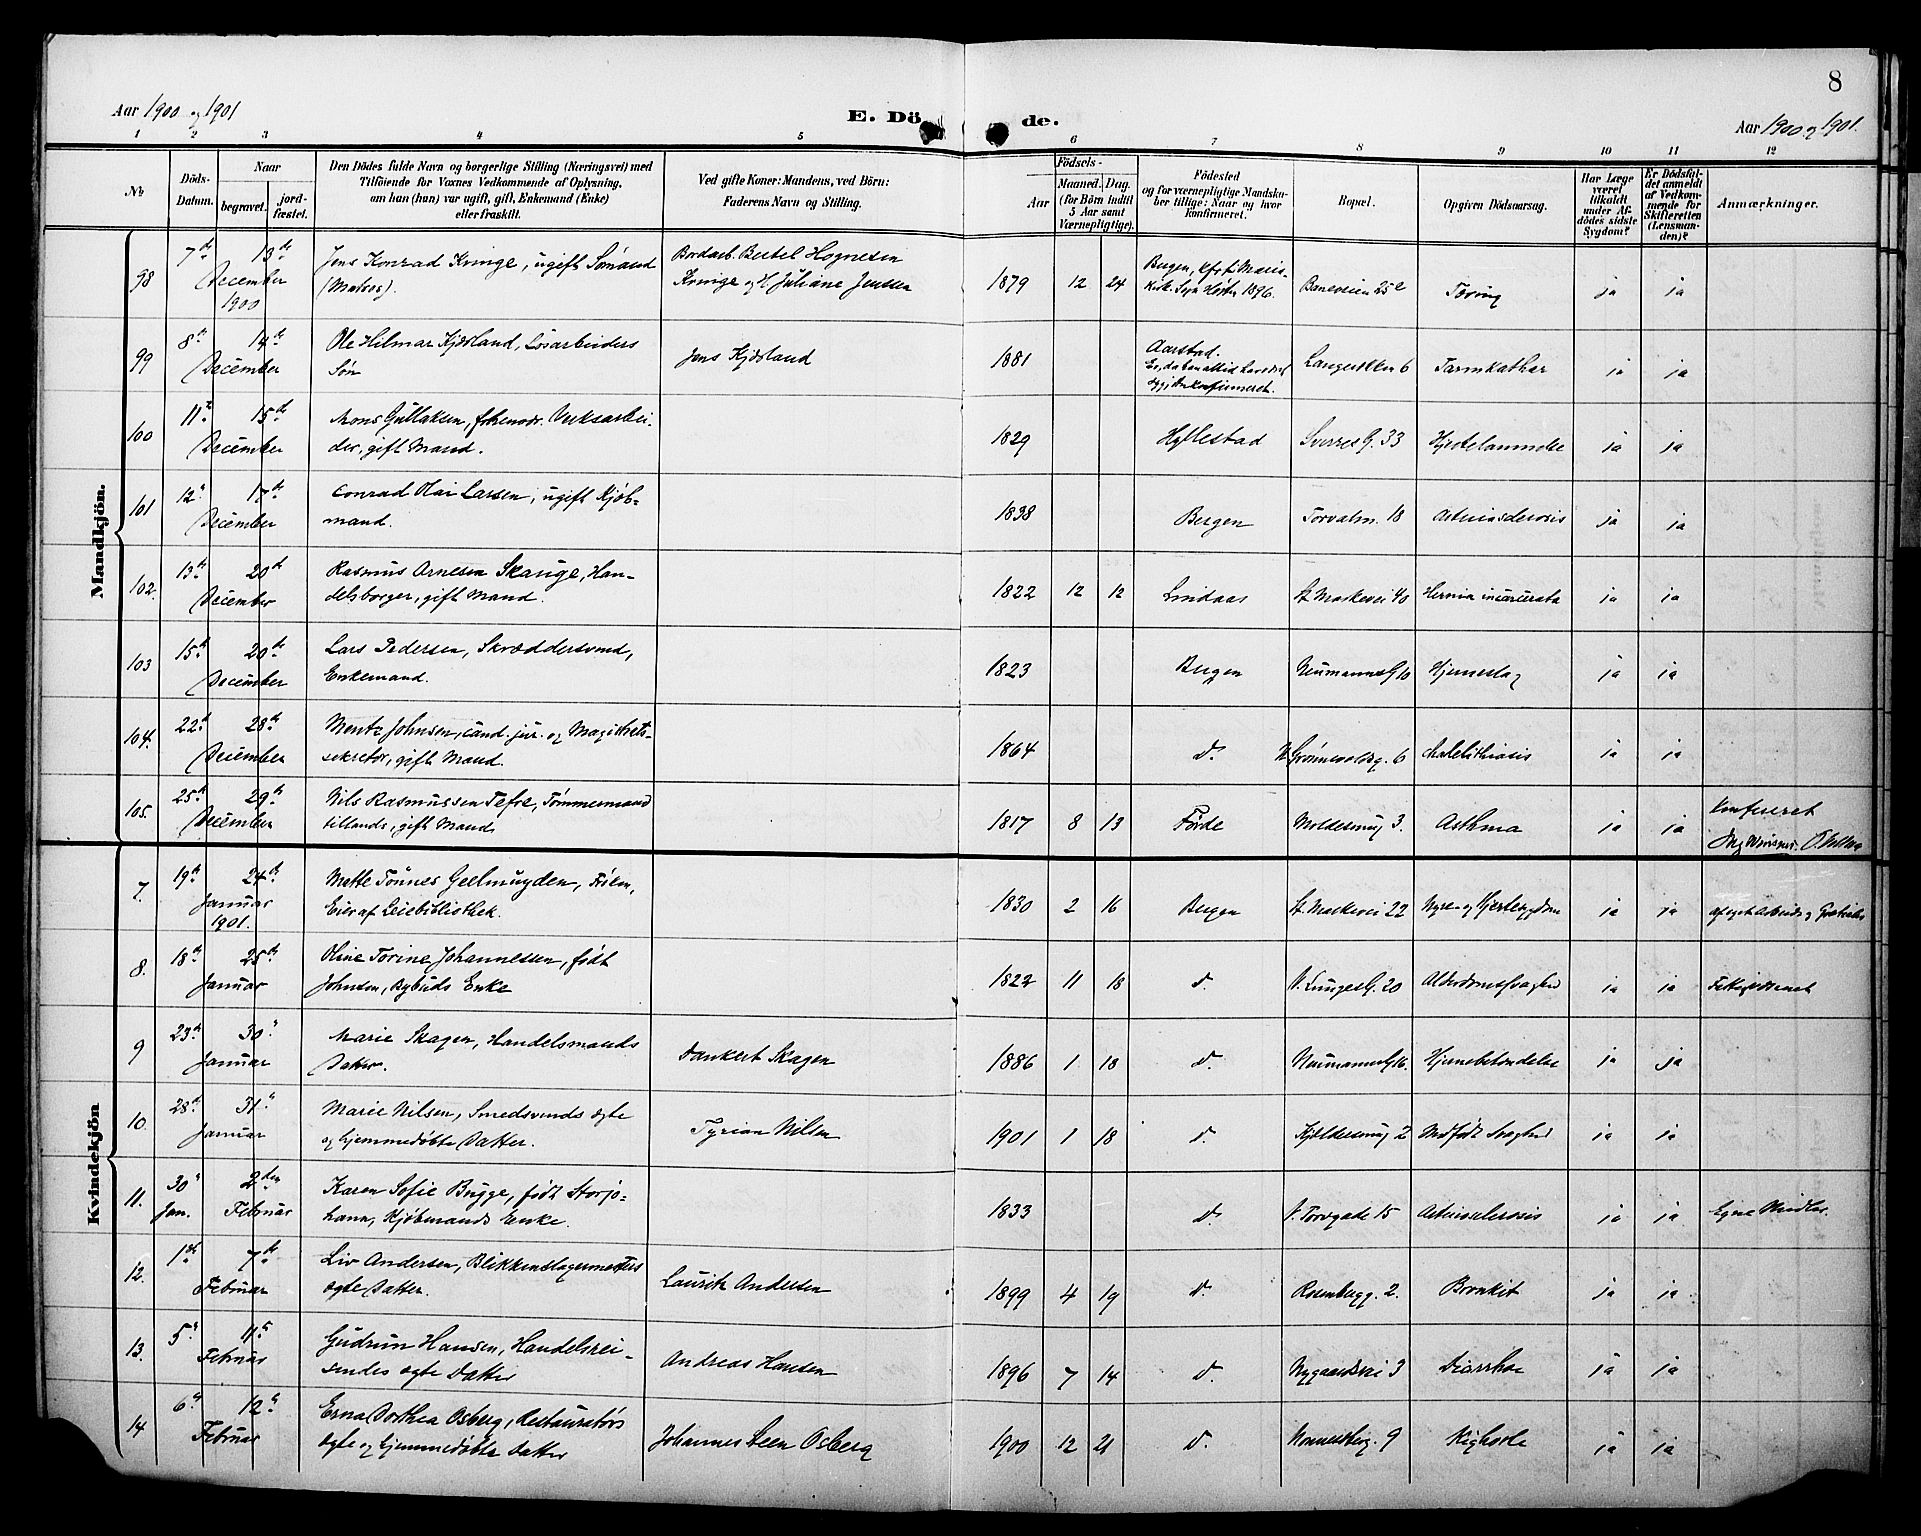 8
Aar 1900 og 1901
E. Dö de.
Aar 1900 og 1901.
1 2 3 4 5 6 7 8 9 10 11 12
No
Döds-Datum.
Naar
begravet.
jord-fæstet.
Den Dödes fulde Navn og borgerlige Stilling (Næringsvei) med
Tilföiende for Voxnes Vedkommende af Oplysning,
om han (hun) var ugift, gift, Enkemand (Enke)
eller fraskilt.
Ved gifte Koner: Mandens, ved Börn:
Faderens Navn og Stilling.
Födsels-
Aar
Maaned. Dag.
(for Börn indtil
5 Aar samt
Værnepligtige).
Födested
og for værnepligtige Mandska-
ber tillige: Naar og hvor
konfirmeret.
Bopæl.
Opgiven Dödsaarsag.
Har Læge
været
tilkaldt
under Af-
dödes sidste
Sygdom?
Er Dödsfal-
det anmeldt
af Vedkom-
mende for
Skifteretten
(Lensman-
den)?
Anmærkninger.
Mandkjön.
98 7de 13de December 1900 Jens Konrad Kvinge, ugift Sömand
(Matros).
Bordarb. Bertel Hognesen
Kvinge og H. Juliane Jensen
1879 12 24 Bergen, kfrt. Marie-
Kirk. Sogn Høsten 1896. Baneveien 25 c Tæring ja ja
99 8de 14de December Ole Hilmar Kjösland, Lösarbeiders
Sön
Jens Kjösland 1881 Aarstad.
konfirmeret. 6 Tarmkathar ja ja
100 11te 15de December Mons Gullaksen, forhenv. Verksarbei-
der, gift Mand. 1829 Hyllestad Sverres G. 33 Hjertelammelse ja ja
101 12te 17de December Conrad Hai Larsen, ugift Kjöb-
mand. 1838 Bergen Torvalm. 18 Arteriosclerosis ja ja
102. 13de 20de December Rasmus Arnesen Skauge, Han-
delsborger, gift Mand. 1822 12 12 Lindaas St. Markevei 40 Hernia incarcerata ja ja
103 15de 20de December Lars Pedersen, Skræddersvend,
Enkemand. 1823 Bergen Neumanns G 10 Hjerneslag ja ja
104. 22de 28de December Mentz Johnsen, cand. jur. og Magistrats-
sekretær, gift Mand. 1864 d. 6 Cholelithiasis ja ja
105. 25de 29de December Nils Rasmussen Tefre, Tömmermand
tillands, gift Mand 1817 8 13 Förde Moldesmug 3. Asthma ja ja
Kvindekjön
7. 19de 24de Januar 1901. Mette Tönnes Geelmuyden, Fröken,
Eier af Leiebibliothek. 1830 2 16 Bergen St. Markevei 22 Nyre- og Hjertesygdom ja ja
8. 18de 25de Januar Oline Torine Johannessen, født
Johnsen, Bybuds Enke 1822 11 18 d. V. Lunges G. 20 Alderdomssvaghed ja ja
9 23de 30te Januar Marie Skagen, Handelsmands
Datter. Dankert Skagen 1886 1 18 d. Neumanns G 16. Hjernebetændelse ja ja
10. 28de 31te Januar Marie Nilsen, Smedsvends ægte
og hjemmedöbte Datter. Nilsen 1901 1 18 d. 2 Medfödt Svaghed ja ja
11. 30te Jan. 2den Februar Karen Sofie Bugge, født Storjo-
hann, Kjöbmands Enke. 1833 d. V. Torvgade 15 Arteriosclerosis ja ja Egne Midler.
12. 1ste 7de Februar Liv Andersen, Blikkenslagermesters
ægte Datter. Lauritz Andersen 1899 4 19 d. Rosenbergg. 2. Bronkit ja ja
13. 5te 11te Februar Gudrun Hansen, Handelsrei-
sendes ægte Datter Andreas Hansen 1896 7 14 d. Nygaardsvei 3 Diarrhoe ja ja
14 6te 12te Februar Erna Dorthea Osberg, Restauratörs
ægte og hjemmedöbte Datter Johannes Steen Osberg 1900 12 21 d. Nonnesterg. 9 Kighoste ja ja